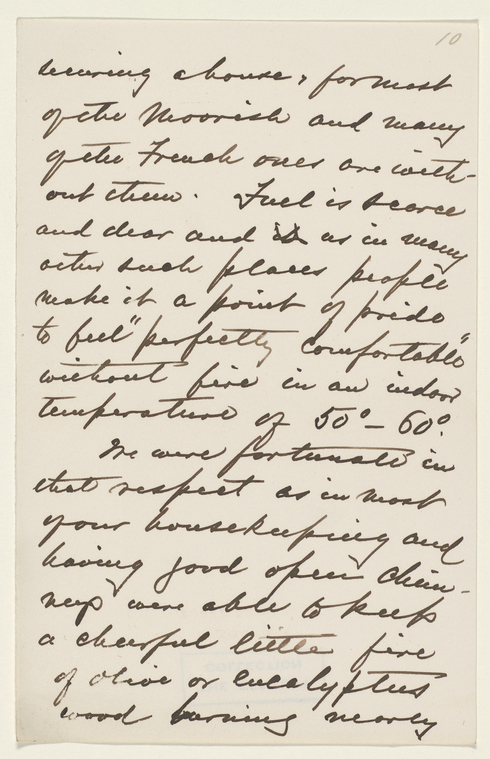 10
securing a house, for most
of the Moorish and many
of the French ones are with-
out them. Fuel is scarce
and dear and as in many
other such places people
make it a point of pride
to feel "perfectly comfortable"
without fire in an indoor
temperature of 50° – 60°.
We were fortunate in
that respect as in most
of our housekeeping and
having good open chim-
neys were able to keep
a cheerful little fire
of olive or eucalyptus
wood burning nearly